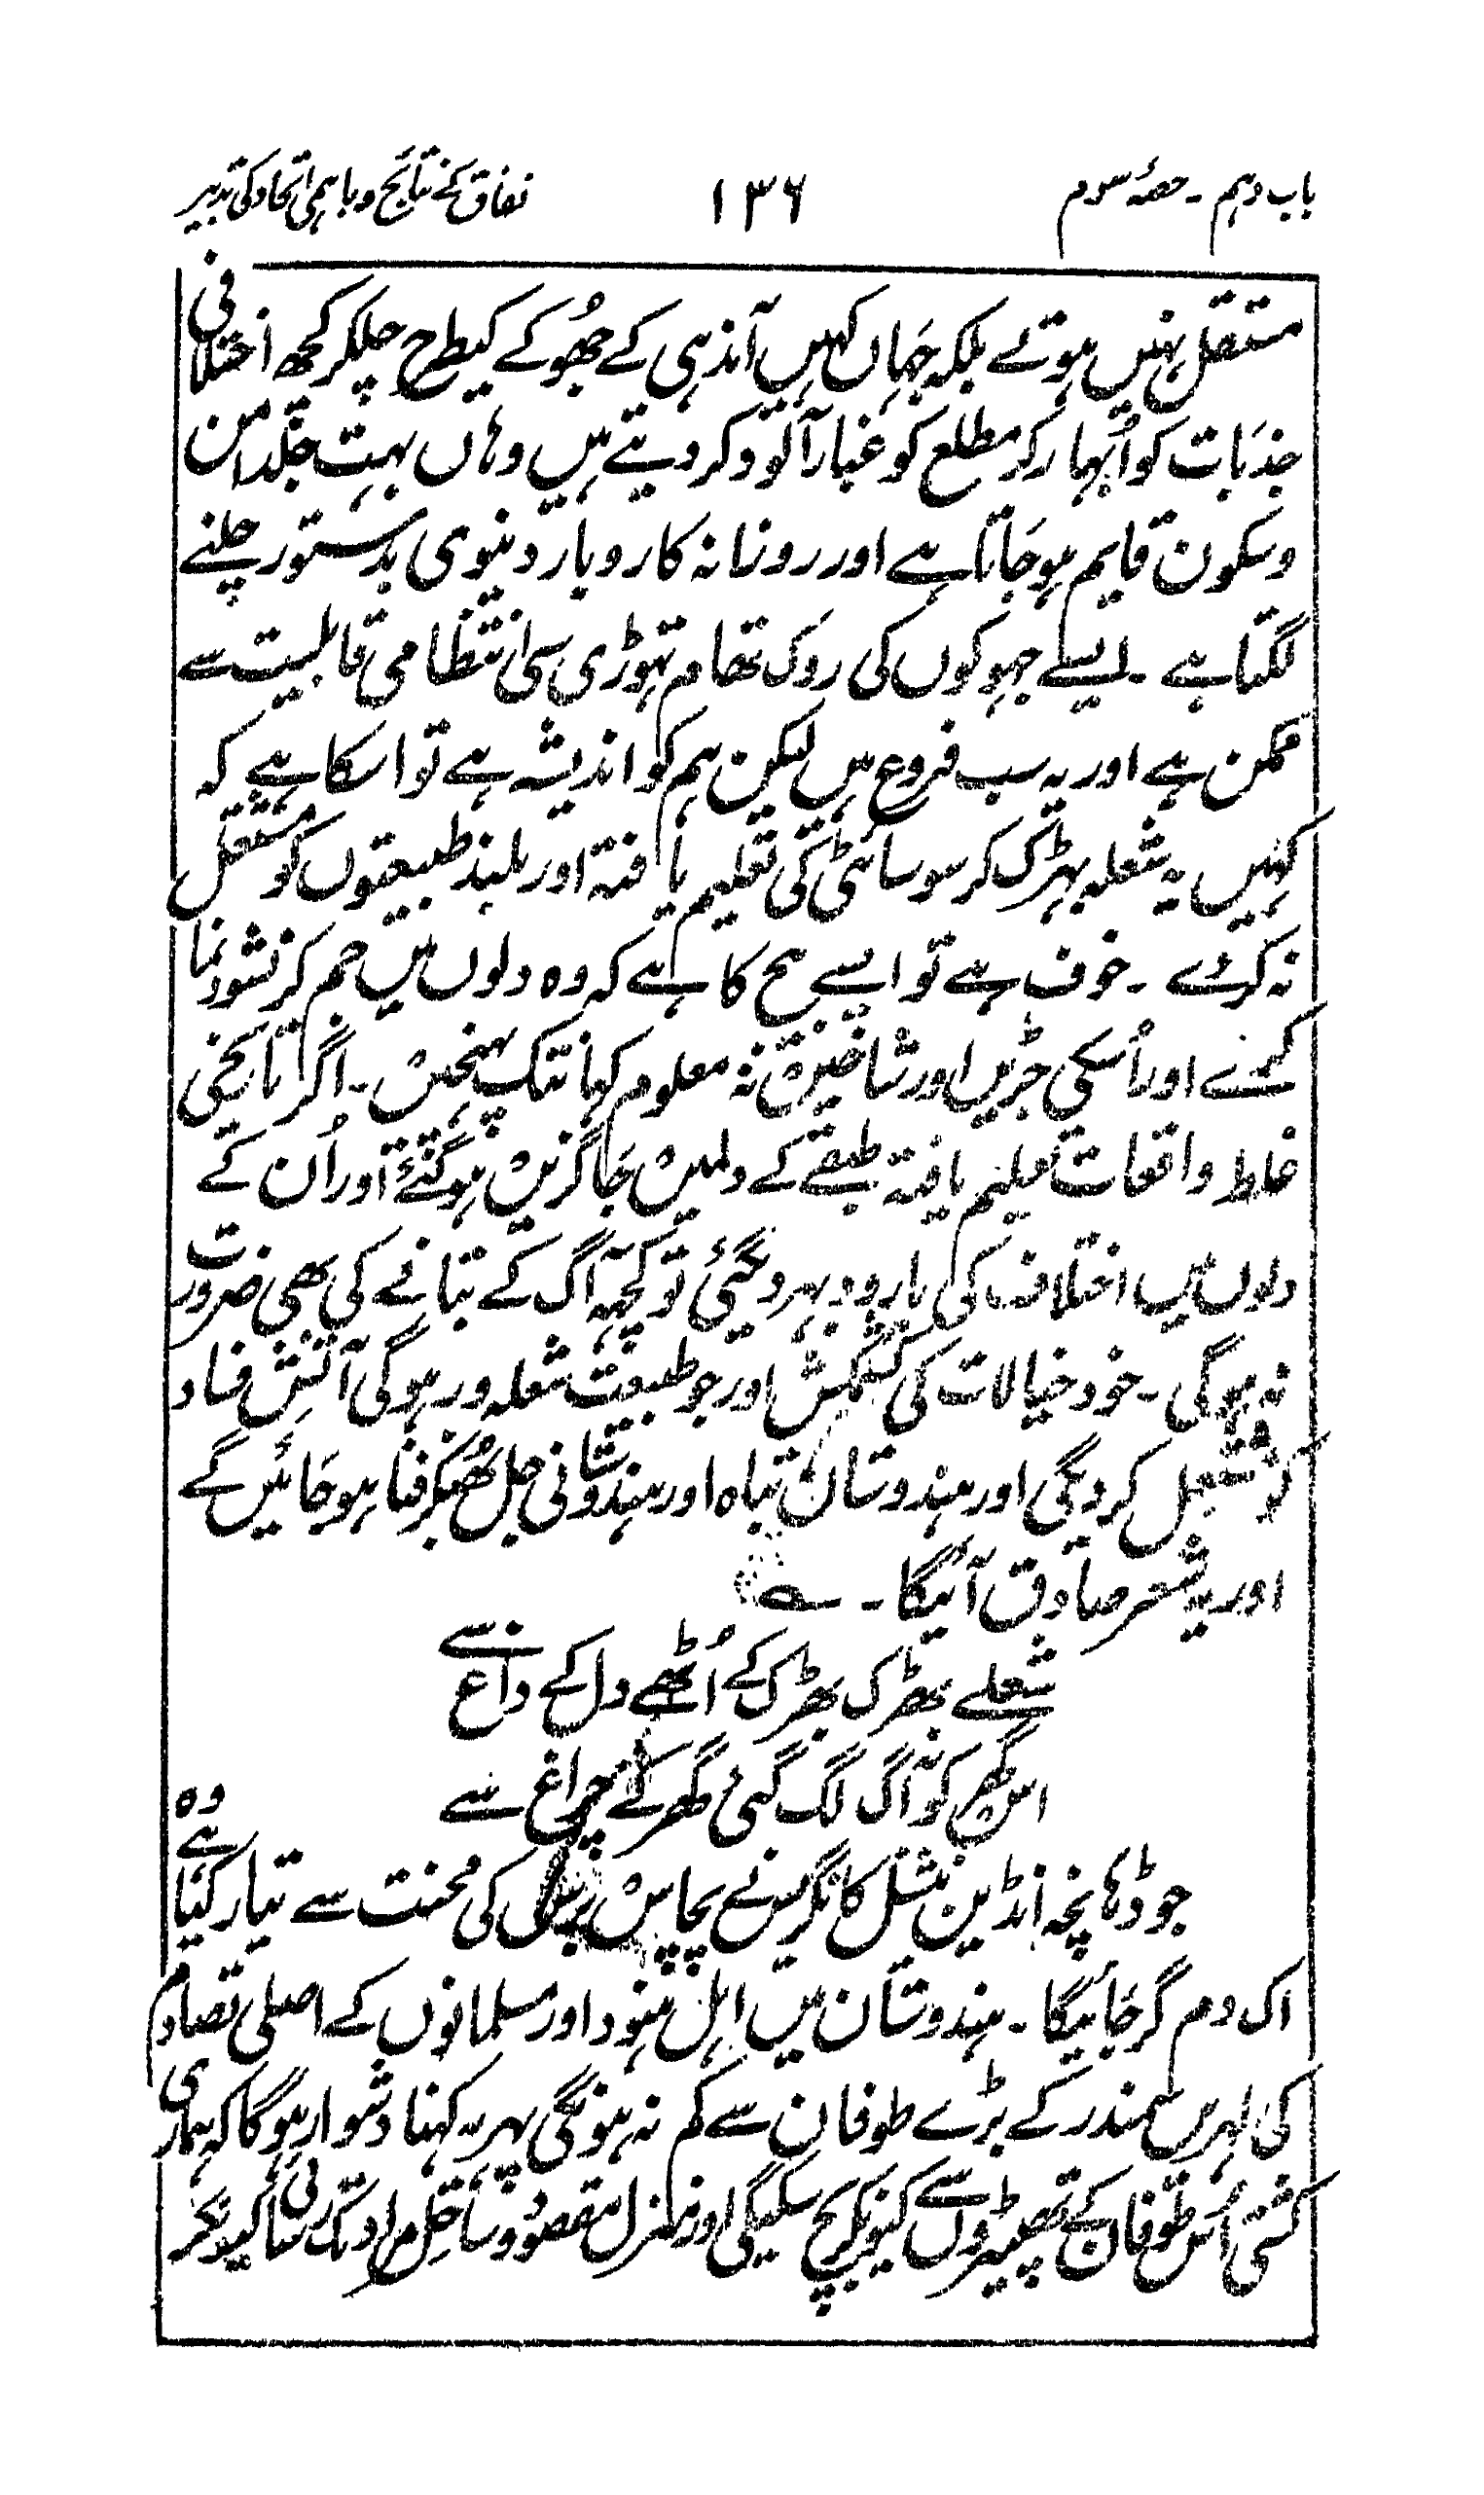 باب دہم ۔ حصۂ سوم ۱۳۶ نفاق کے نتائج و باہمی اتحاد کی تدبیر
مستقل نہیں ہوتے بلکہ جہاں کہیں آندہی کے جھُوکے کیطرح چلکر کچھ اختلافی
جذبات کو اُبہار کر مطلع کو غبار آلود کر دیتے ہیں وہاں بہت جلد امن
وسکون قایم ہوجاتا ہے اور روزانہ کاروبار دنیوی بدستور چلنے
لگتا ہے ۔ ایسے جہوکوں کی روک تھام تہوڑی سی انتظامی قابلیت سے
ممکن ہے اور یہ سب فروع ہیں لیکن ہم کو اندیشہ ہے تو اسکا ہے کہ
کہیں یہ شعلہ بہڑک کر سوسائٹی کی تعلیم یافتہ اور بلند طبیعتوں کو مشتعل
نہ کردے ۔ خوف ہے تو ایسے بیج کا ہے کہ وہ دلوں میں جم کر نشوونما
کرے اور اُسکی جڑیں اور شاخیں نہ معلوم کہانتک پہنچیں ۔ اگر تاریخی
غلط واقعات تعلیم یافتہ طبقے کے دلمیں جاگزیں ہوگئے اور اُن کے
دلوں میں اختلاف کی بارود بہردیگئی تو کچہہ آگ کے بتانے کی بھی ضرورت
نہ ہوگی ۔ خود خیالات کی کشمکش اور جو طبیعت شعلہ ور ہوگی آتش فساد
کو مشتعل کردیگی اور ہندوستان تباہ اور ہندوستانی جل بھُنکر فنا ہوجائیں گے
اور یہ شعر صادق آئیگا ۔ ؎
شعلے بھڑک بھڑک کے اُٹھے دل کے داغ سے
اس گھر کو آگ لگ گئی گھر کے چراغ سے
جو ڈہانچہ انڈین نیشنل کانگریس نے پچاس برس کی محنت سے تیار کیا ہے وہ
اک دم گر جائیگا ۔ ہندوستان میں اہل ہنود اور مسلمانوں کے اصلی تصادم
کی لہریں سمندر کے بڑے طوفان سے کم نہ ہونگی پہر یہ کہنا دشوار ہوگا کہ ہماری
کشتی اُس طوفان کے تھپیڑوں سے کیونکر بچ سکیگی اور منزل مقصود و ساحل مراد تک رسائی کیونکر